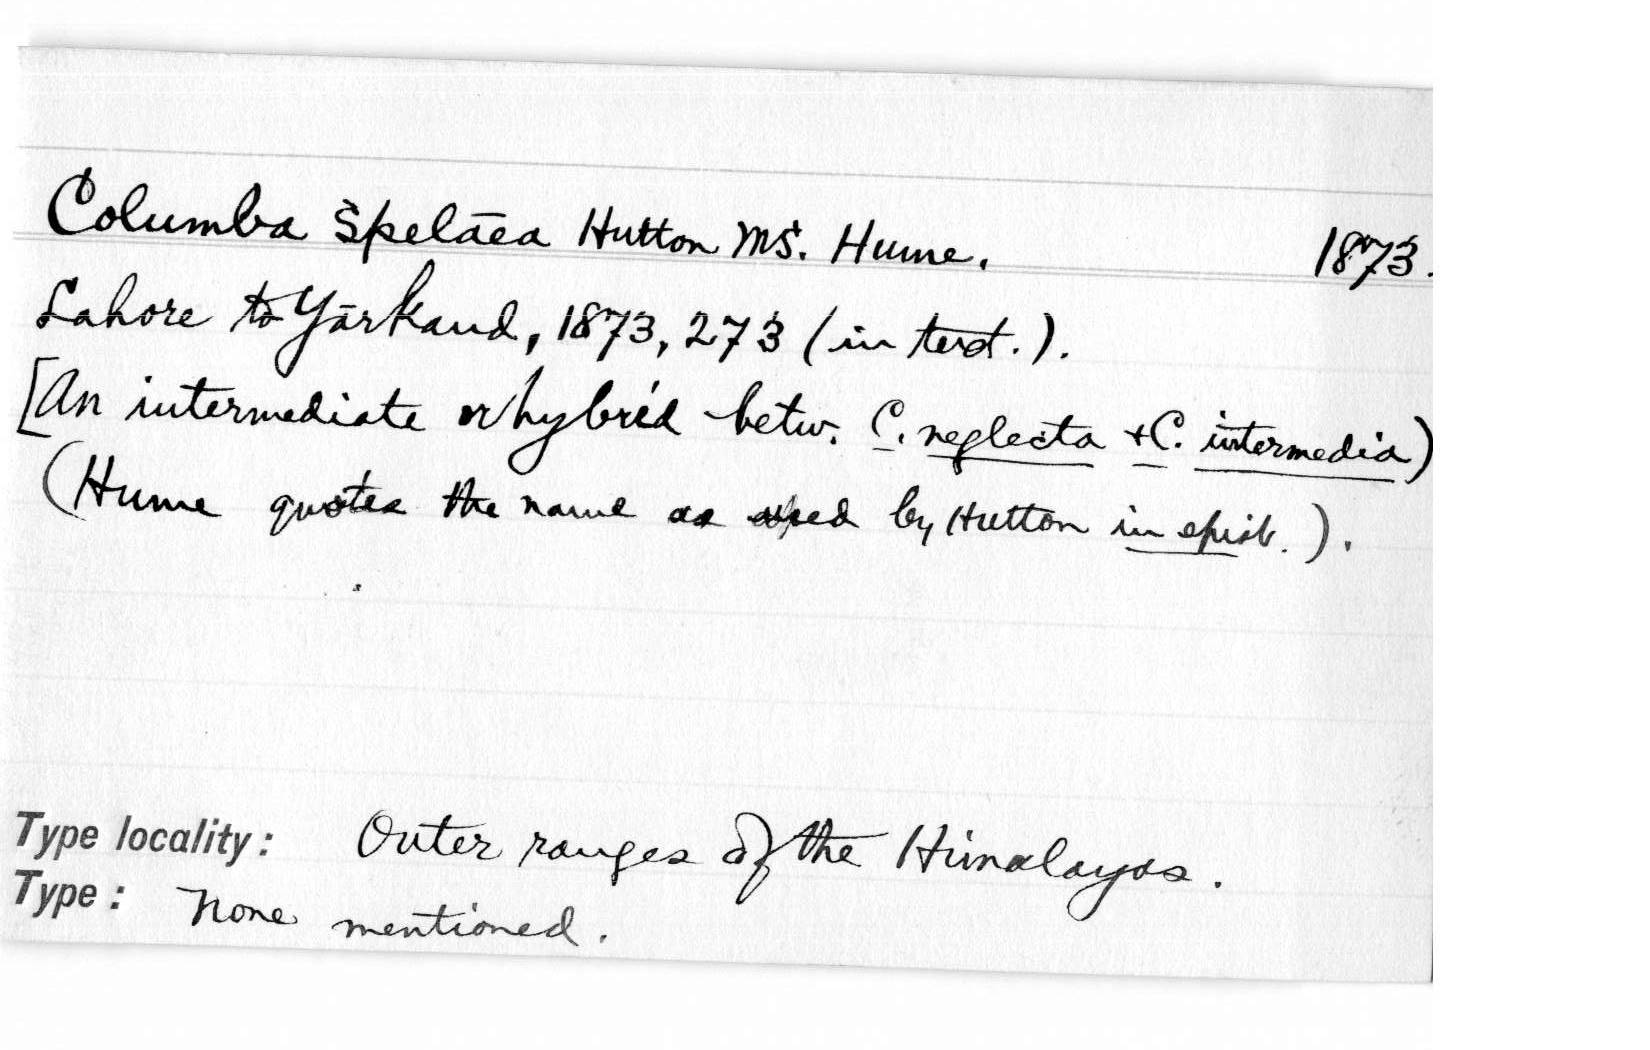 Columba Spelāea Hutton MS. Hume. 1873.
Lahore to Yārkand, 1873, 273 (in text.).
[An intermediate or hybrid betw. C. neglecta + C. intermedia)
(Hume quotes the name as used by Hutton in epist.).
Type locality: Outer ranges of the Himalayas.
Type: None mentioned.